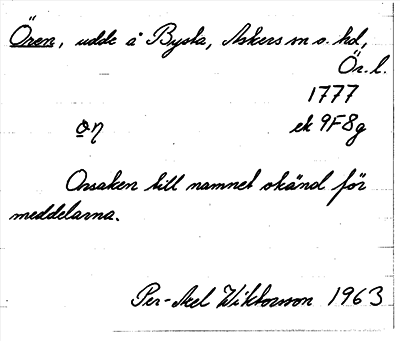 Ören, udde å Bysta, Askers sn o. hd,
Ör. l.
1777
ek 9F8g
Orsaken till namnet okänd för
meddelarna.
Per-Axel Wiktorsson 1963